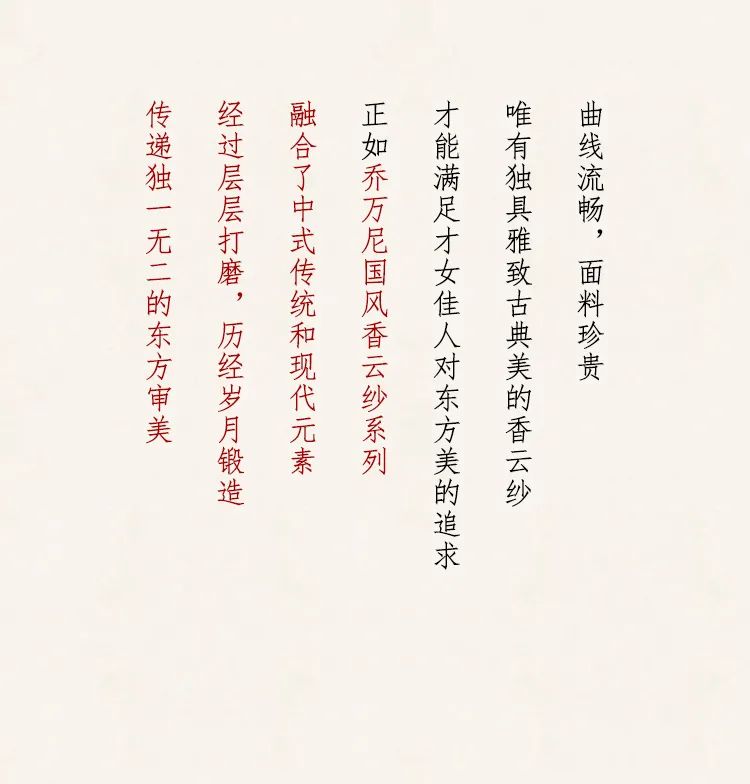 曲线流畅，面料珍贵
唯有独具雅致古典美的香云纱
才能满足才女佳人对东方美的追求
正如乔万尼国风香云纱系列
融合了中式传统和现代元素
经过层层打磨，历经岁月锻造
传递独一无二的东方审美